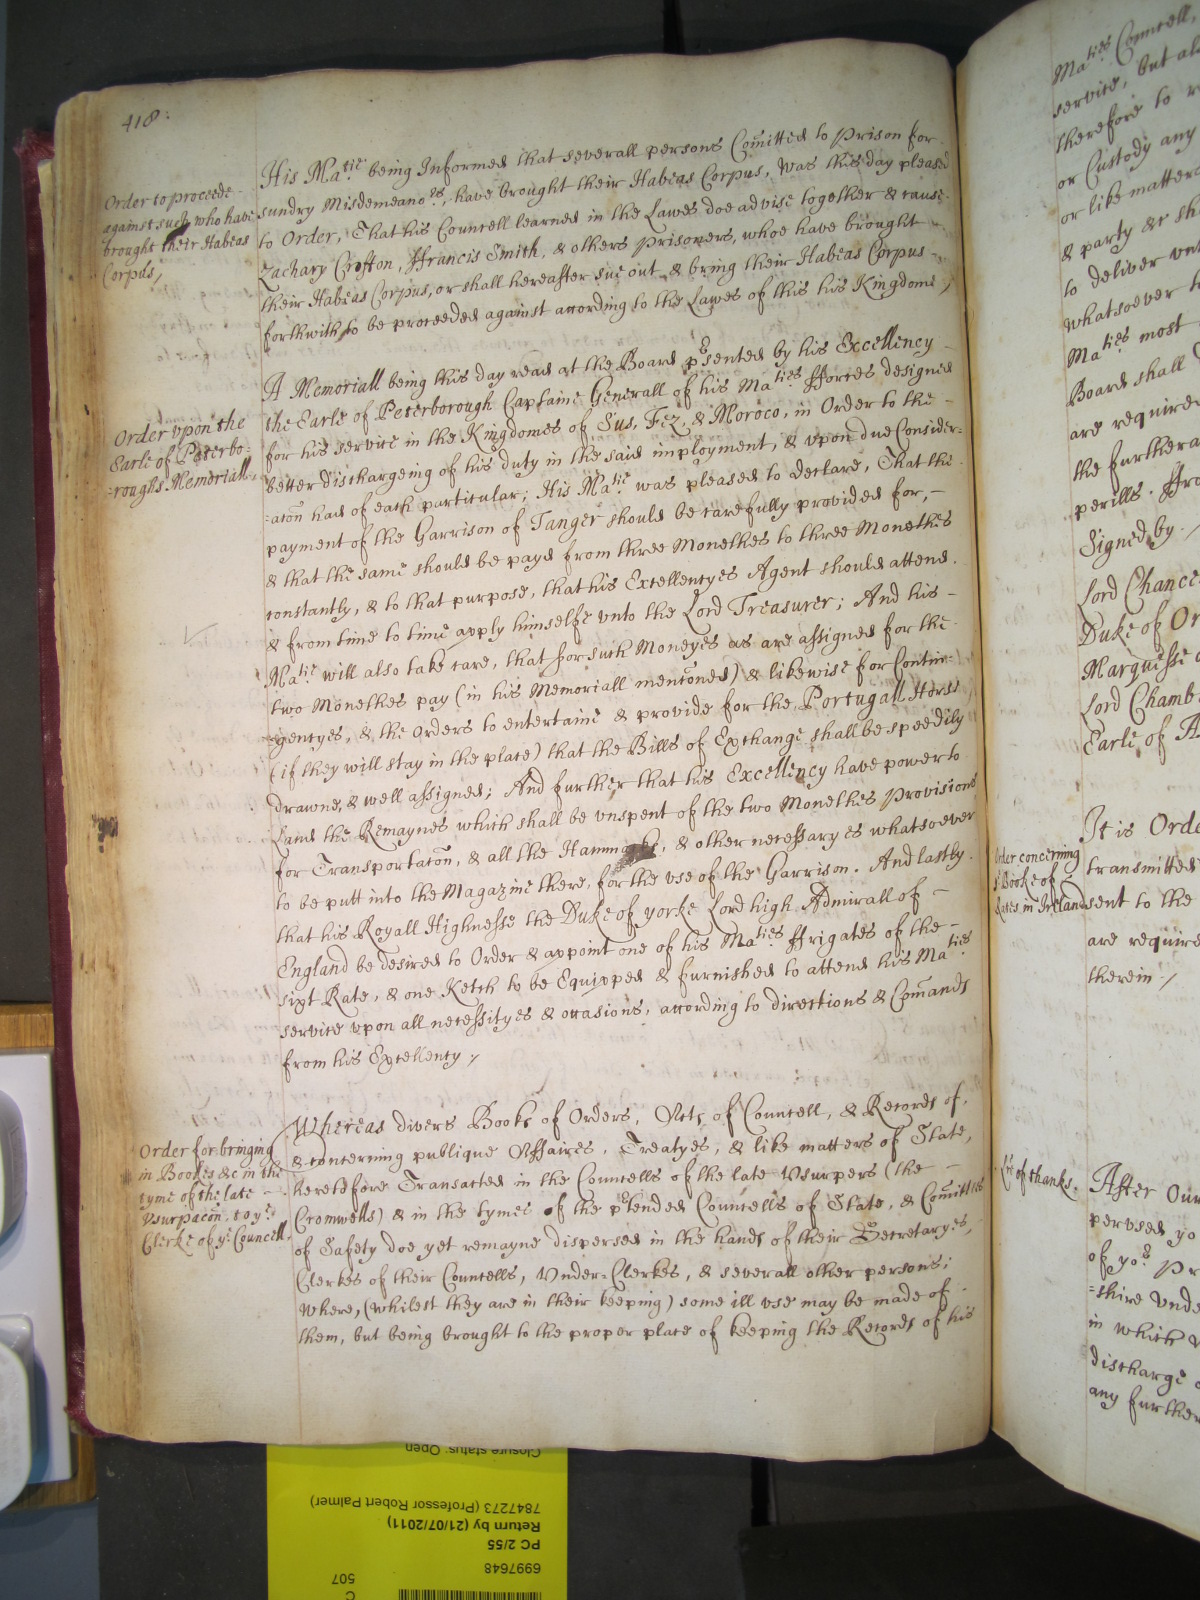 418:
Order to proceede
against such who have
brought their Habeas
Corpus/
His Ma.tie being Informed that severall persons Comitted to Prison for
sundry Misdemeano.rs, have brought their Habeas Corpus, Was this day pleased
to Order, That his Councell learned in the Lawes doe advise together & cause
Zachary Crofton, Ffrancis Smith, & others Prisoners, whoe have brought
their Habeas Corpus, or shall hereafter sue out & bring their Habeas Corpus
forthwith to be proceeded against according to the Lawes of this his Kingdome/
Order upon the
Earle of Peterbo=
=roughs Memoriall.
A Memoriall being this day read at the Board p.rsented by his Excellency
the Earle of Peterborough Captaine Generall of his Ma.ties fforces designed
for his service in the Kingdomes of Sus, Fez, & Moroco, in Order to the
better dischargeing of his duty in the said imployment, & upon due Consider=
=acõn had of each particular; His Ma.tie was pleased to declare, That the
payment of the Garrison of Tanger should be carefully provided for,
& that the same should be payd from three Monethes to three Monethes
constantly, & to that purpose, that his Excellencyes Agent should attend
& from time to time apply himselfe vnto the Lord Treasurer; And his
Ma.tie will also take care, that for such Moneyes as are assigned for the
two Monethes pay (in his Memoriall mencõned) & likewise for Contin=
=gencyes, & the Orders to entertaine & provide for the Portugall Horse
(if they will stay in the place) that the Bills of Exchange shall be speedily
drawne, & well assigned; And further that his Excellency have power to
Land the Remaynes which shall be vnspent of the two Monethes Provisions
for Transportacõn, & all the Hammacks, & other necessaryes whatsoever
to be putt into the Magazine there, for the vse of the Garrison. And lastly
that his Royall Highnesse the Duke of yorke Lord high Admirall of
England be desired to Order & appoint one of his Ma.ties ffrigates of the
sixt Rate, & one Ketch to be Equipped & furnished to attend his Ma.ties
service vpon all necessityes & occasions, according to directions & Comands
from his Excellency/
Order for bringing
in Bookes &c in the
tyme of the late
Vsurpacõn, to y.e
Clerke of y.e Councell.
Whereas divers Books of Orders, Acts of Councell, & Records of,
& concerning publique Affaires, Treatyes, & like matters of State,
heretofore Transacted in the Councells of the late Vsurpers (the
Cromwells) & in the tymes of the p.rtended Councells of State, & Comittees
of Safety doe yet remayne dispersed in the hands of their Secretaryes,
Clerkes of their Councells, Vnder-Clerkes, & severall other persons;
where, (whilest they are in their keeping) some ill vse may be made of
them, but being brought to the proper place of keeping the Records of his
Ma.ties Councell,
service, but
therefore to
or Custody any
or like matters
& party &c
to deliver
whatsoever
Ma.ties most
Board shall
are required
the further
perills.
Signed by
Lord Chance
Duke of Or
Marquesse
Lord Chamb
Earle of A
Order concerning
Booke of
Rates in Ireland
It is Orde
transmitted
sent to the
are require
therein/
of thanks.
After Our
perused yo
of yo.r Pr
=shire Vnde
in which
discharge
any further
Closure status: Open
7847273 (Professor Robert Palmer)
Return by (21/07/2011)
PC 2/55
6997648
507
C